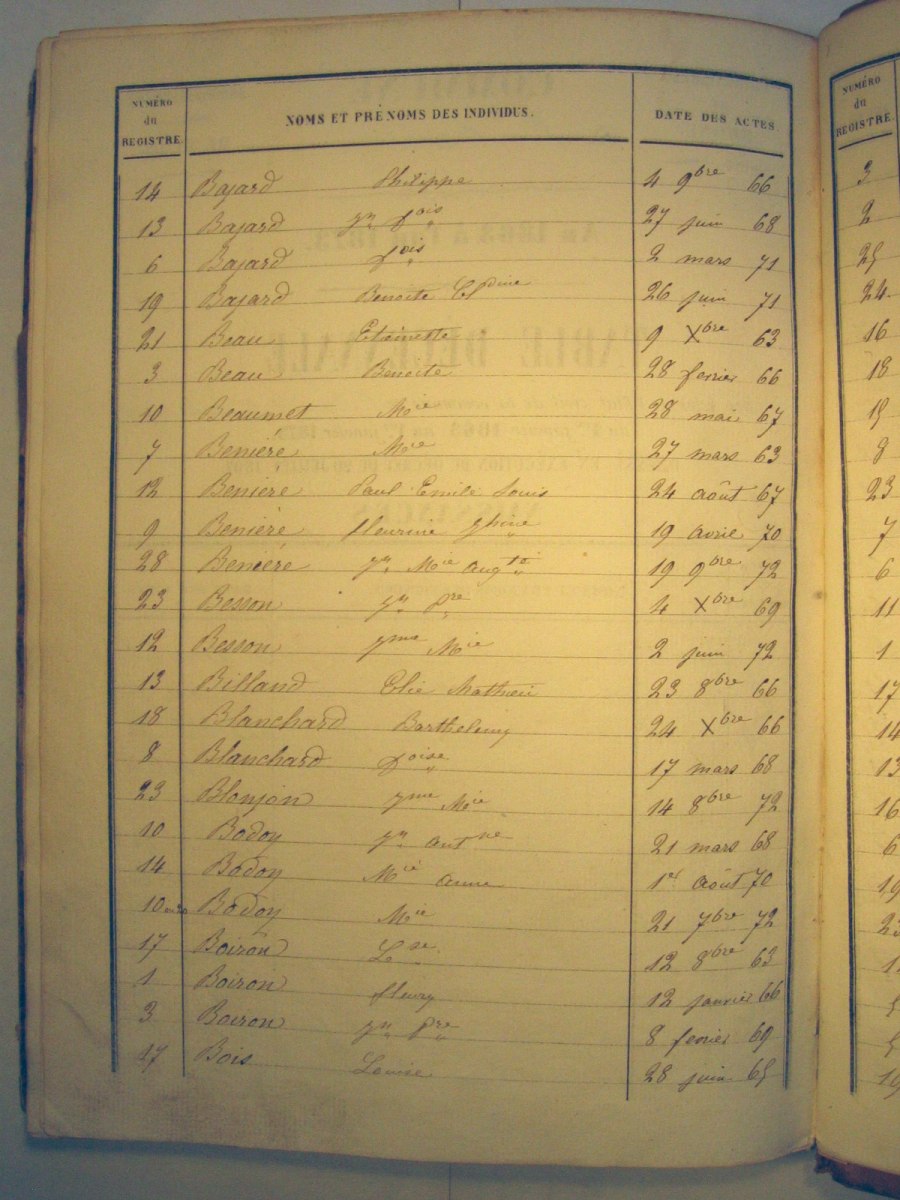 NUMÉRO du REGISTRE. NOMS ET PRÉNOMS DES INDIVIDUS. DATE DES ACTES.
14 Bajard Philippe 4 9bre 66
13 Bajard Jn fois 27 juin 68
6 Bajard fois 2 mars 71
19 Bajard Benoite Cldine 26 juin 71
21 Beau Etiennette 9 Xbre 63
3 Beau Benoite 28 fevrier 66
10 Beaumet Mie 28 mai 67
7 Benière Mie 27 mars 63
12 Benière Paul Emile Louis 24 août 67
9 Benière fleurine Jhine 19 avril 70
28 Benière Jn Mie augte 19 9bre 72
23 Besson Jn Pre 4 Xbre 69
12 Besson Jme Mie 2 juin 72
13 Billand Elie Mathieu 23 8bre 66
18 Blanchard Barthelemy 24 Xbre 66
8 Blanchard foise 17 mars 68
23 Blonjon Jme Mie 14 8bre 72
10 Bodoy Jn antne 21 mars 68
14 Bodoy Mie anne 1er août 70
10 Bodoy Mie 21 7bre 72
17 Boiron Lse 12 8bre 63
1 Boiron fleury 12 janvier 66
3 Boiron Jn Pre 8 fevrier 69
17 Bois Louise 28 juin 65
NUMÉRO du REGISTRE.
3
2
25
24
16
18
15
8
23
7
6
11
1
17
14
13
16
6
19